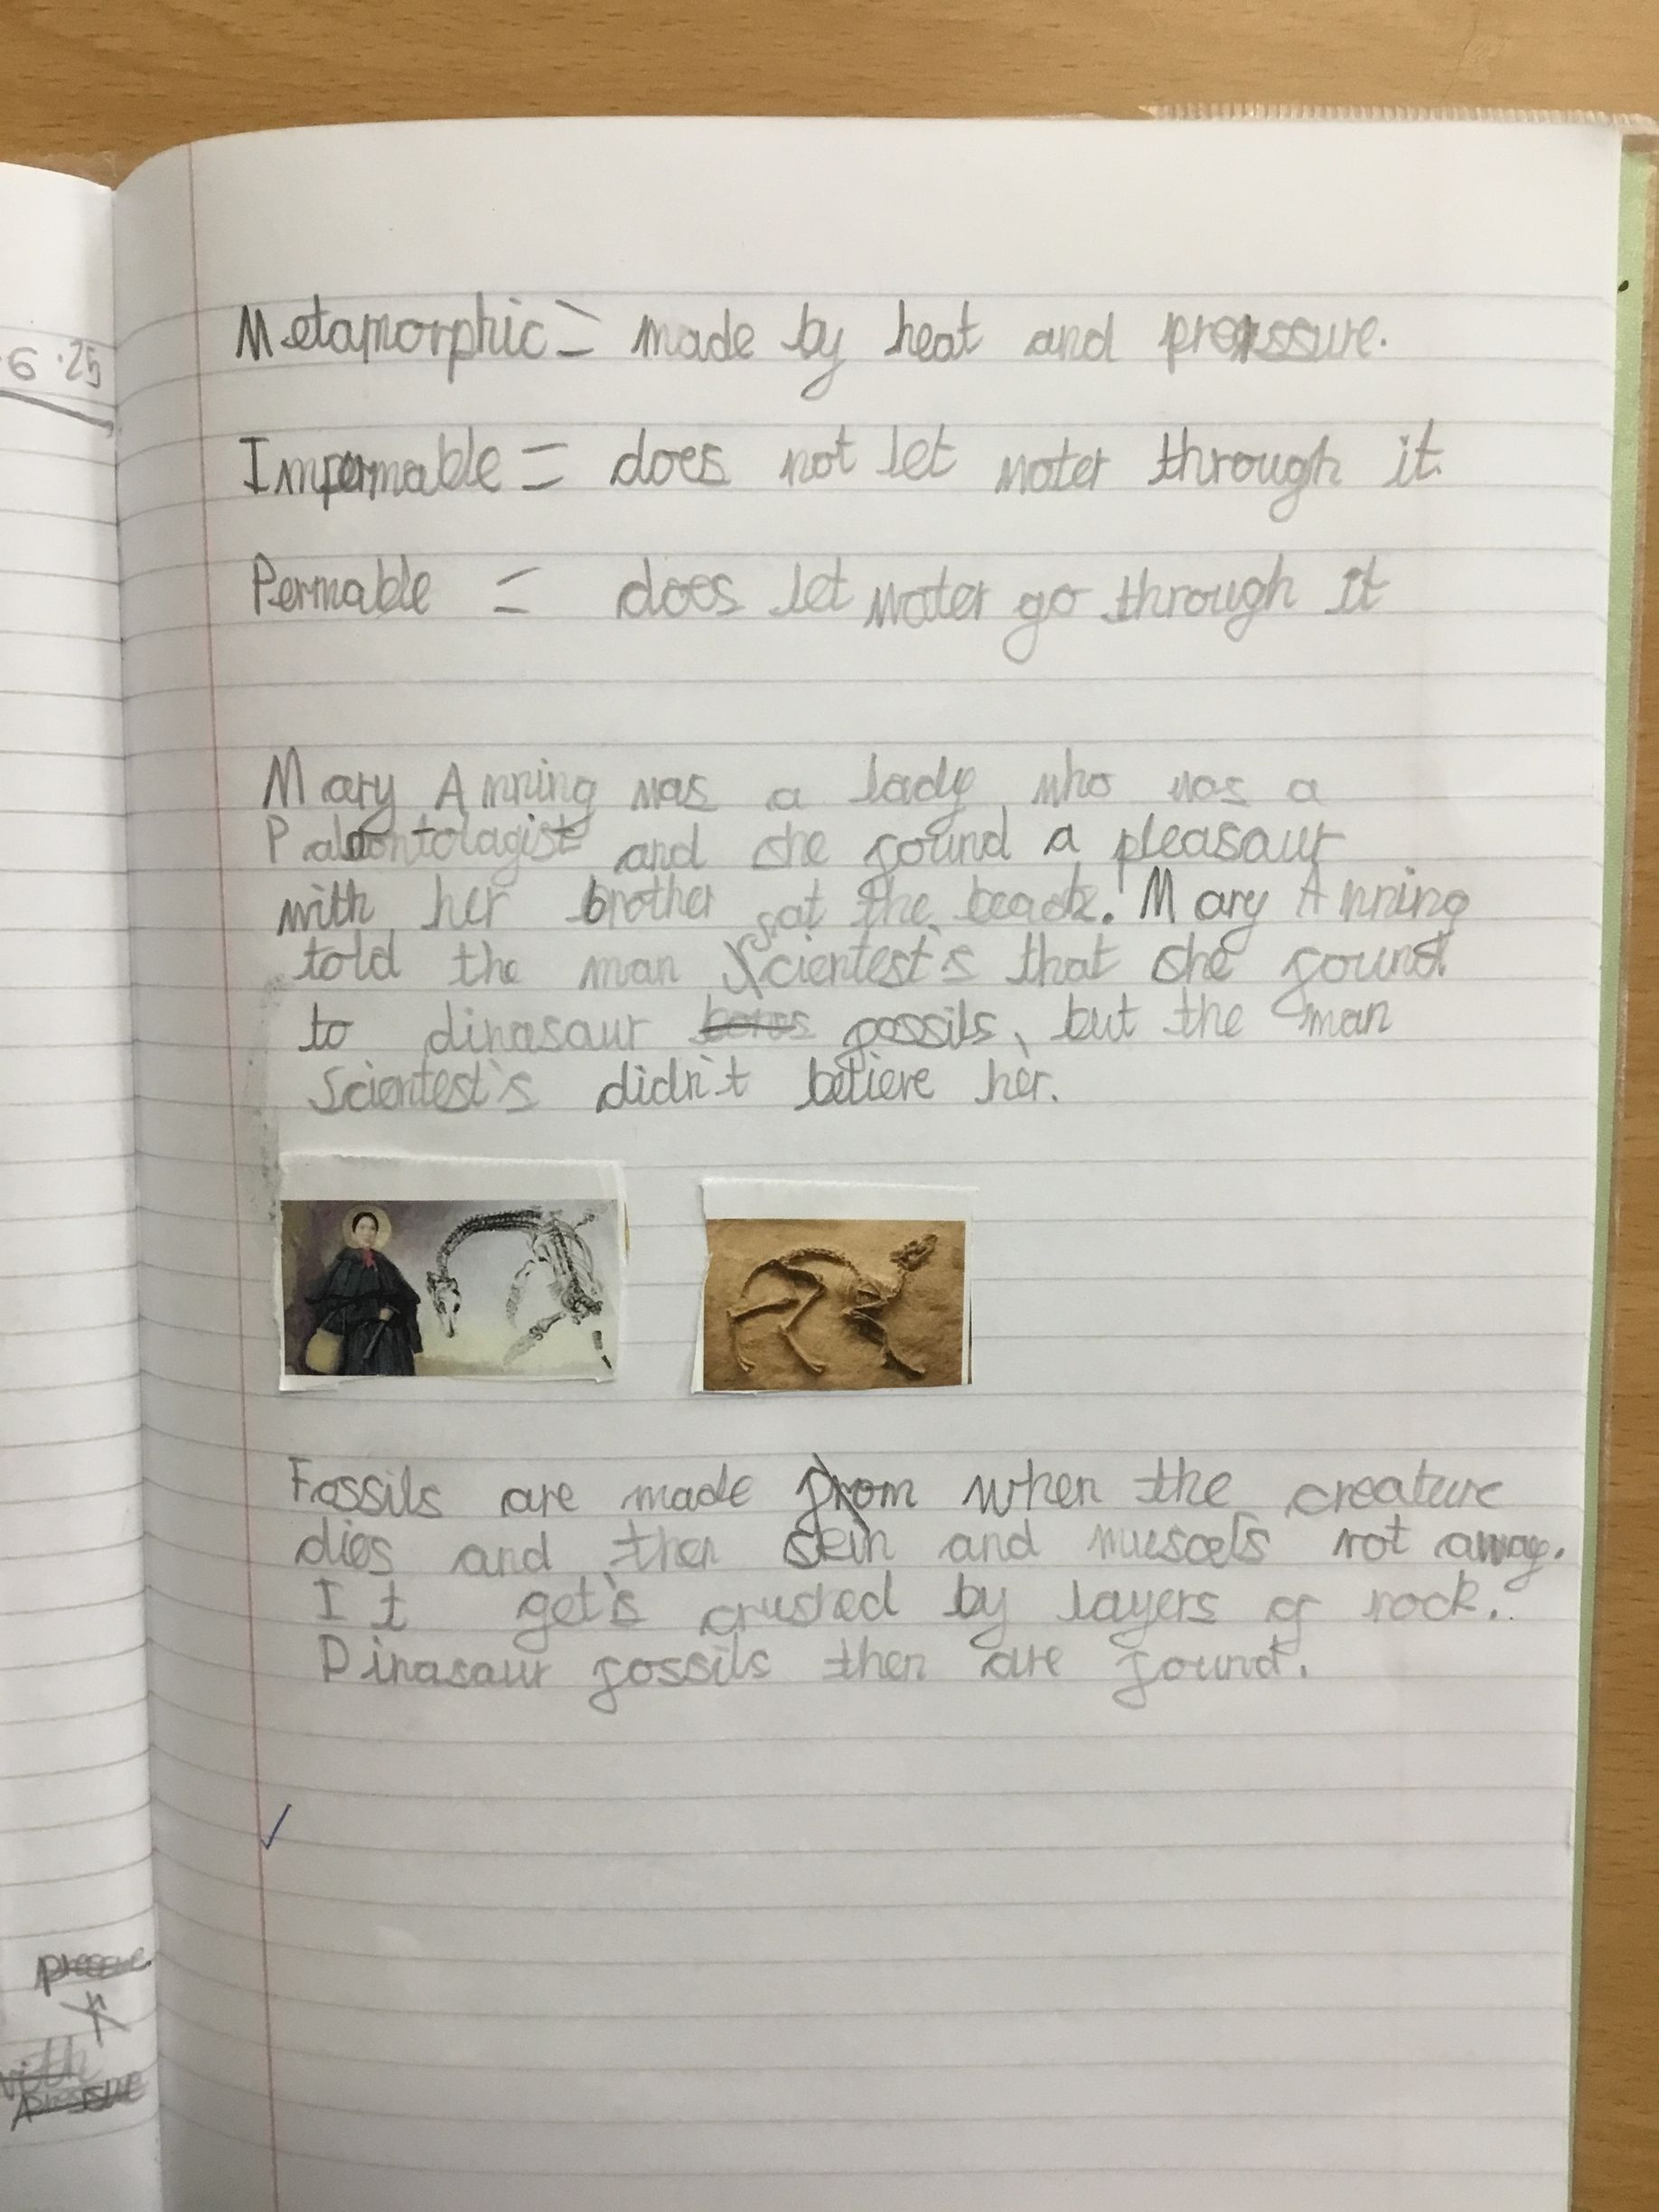 .6.25
Metamorphic = made by heat and pressure.
Impermable = does not let water through it.
Permable = does let water go through it
Mary Anning was a lady who was a
Palaontolagist and she found a pleasaur
with her brother at the beach. Mary Anning
told the man Scientest's that she found
to dinasaur bones fossils, but the man
Scientest's didn't believe her.
Fossils are made from when the creature
dies and then skin and muscels rot away.
It get's crushed by layers of rock.
Dinasaur fossils then are found.
with